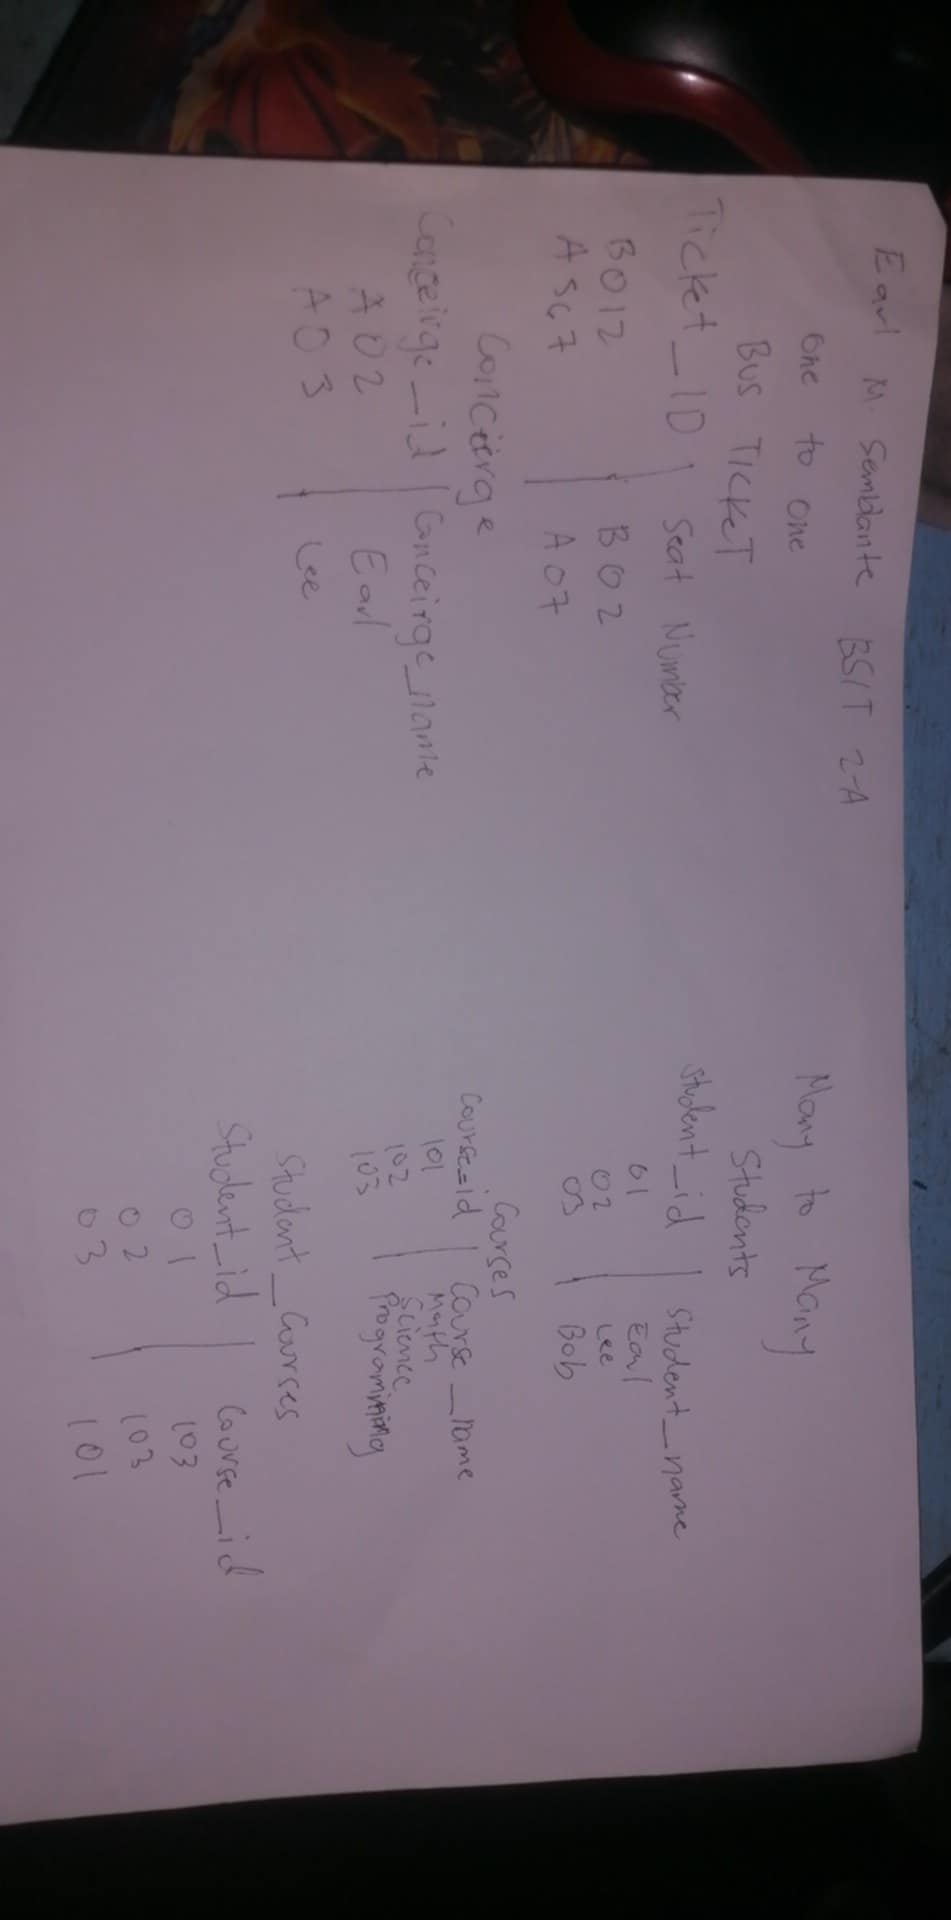 Earl M. Semblante BSIT 2-A
one to one
Bus TICKET
Ticket_ID | Seat Number
B012 | B02
A567 | A07
Concierge
Conceirge_id | Conceirge_name
A02 | Earl
A03 | Lee
Many to Many
Students
Student_id | Student_name
01 | Earl
02 | Lee
03 | Bob
Courses
Course_id | Course_name
101 | Math
102 | Science
103 | Programming
Student_Courses
Student_id | Course_id
01 | 103
02 | 103
03 | 101